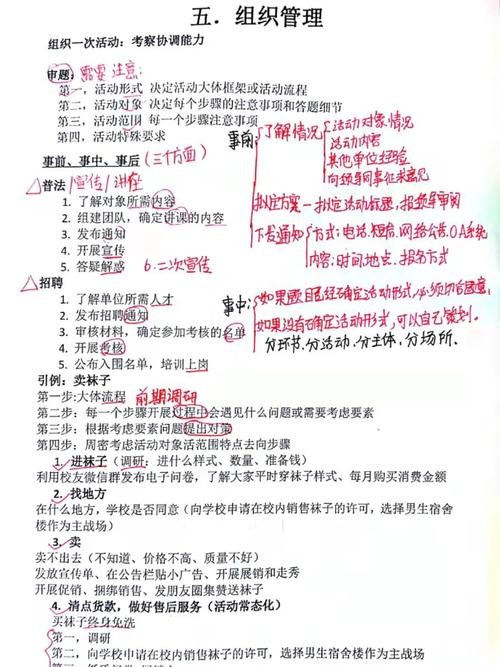 五. 组织管理
组织一次活动：考察协调能力
审题：需要注意：
第一，活动形式 决定活动大体框架或活动流程
第二，活动对象 决定每个步骤的注意事项和答题细节
第三，活动范围 每一个步骤注意事项
第四，活动特殊要求
事前：
了解情况
活动对象情况
活动内容
其他单位经验
向领导同事征求意见
拟定方案－拟定活动标题，报领导审阅
下发通知
方式：电话.短信.网络公告.OA系统
内容：时间.地点.报名方式
事前、事中、事后（三个方面）
△普法/宣传/讲座
1. 了解对象所需内容
2. 组建团队，确定讲课的内容
3. 发布通知
4. 开展宣传
5. 答疑解惑 6.二次宣传
△招聘
1. 了解单位所需人才
2. 发布招聘通知
3. 审核材料，确定参加考核的名单
4. 开展考核
5. 公布入围名单，培训上岗
事中：
如果题目已经确定活动形式，必须切合题意，
如果没有确定活动形式，可以自己策划。
分环节.分活动.分主体.分场所.
引例：卖袜子
第一步:大体流程 前期调研
第二步：每一个步骤开展过程中会遇见什么问题或需要考虑要素
第三步：根据考虑要素问题提出对策
第四步：周密考虑活动对象活范围特点去向步骤
1. 进袜子（调研：进什么样式、数量、准备钱）
利用校友微信群发布电子问卷，了解大家平时穿袜子样式、每月购买消费金额
2. 找地方
在什么地方，学校是否同意（向学校申请在校内销售袜子的许可，选择男生宿舍
楼作为主战场）
3. 卖
卖不出去（不知道、价格不高、质量不好）
发放宣传单、在公告栏贴小广告、开展展销和走秀
开展促销、捆绑销售、发朋友圈集赞送袜子
4. 清点货款，做好售后服务（活动常态化）
买袜子终身免洗
第一，调研
第二，向学校申请在校内销售袜子的许可，选择男生宿舍楼作为主战场